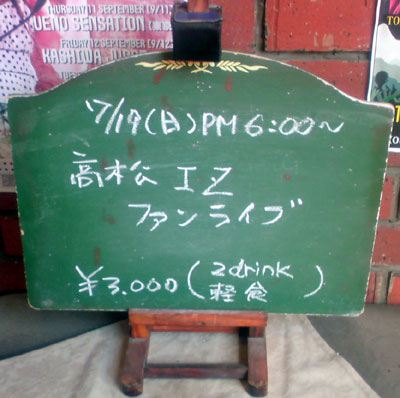 THURSDAY 11 SEPTEMBER (9/11
UENO SENSATION (東京
FRIDAY 12 SEPTEMBER (9/12
KASHIWA
TO
7/19(日)PM6:00〜
高松 IZ
ファンライブ
¥3.000(2drink
軽食)